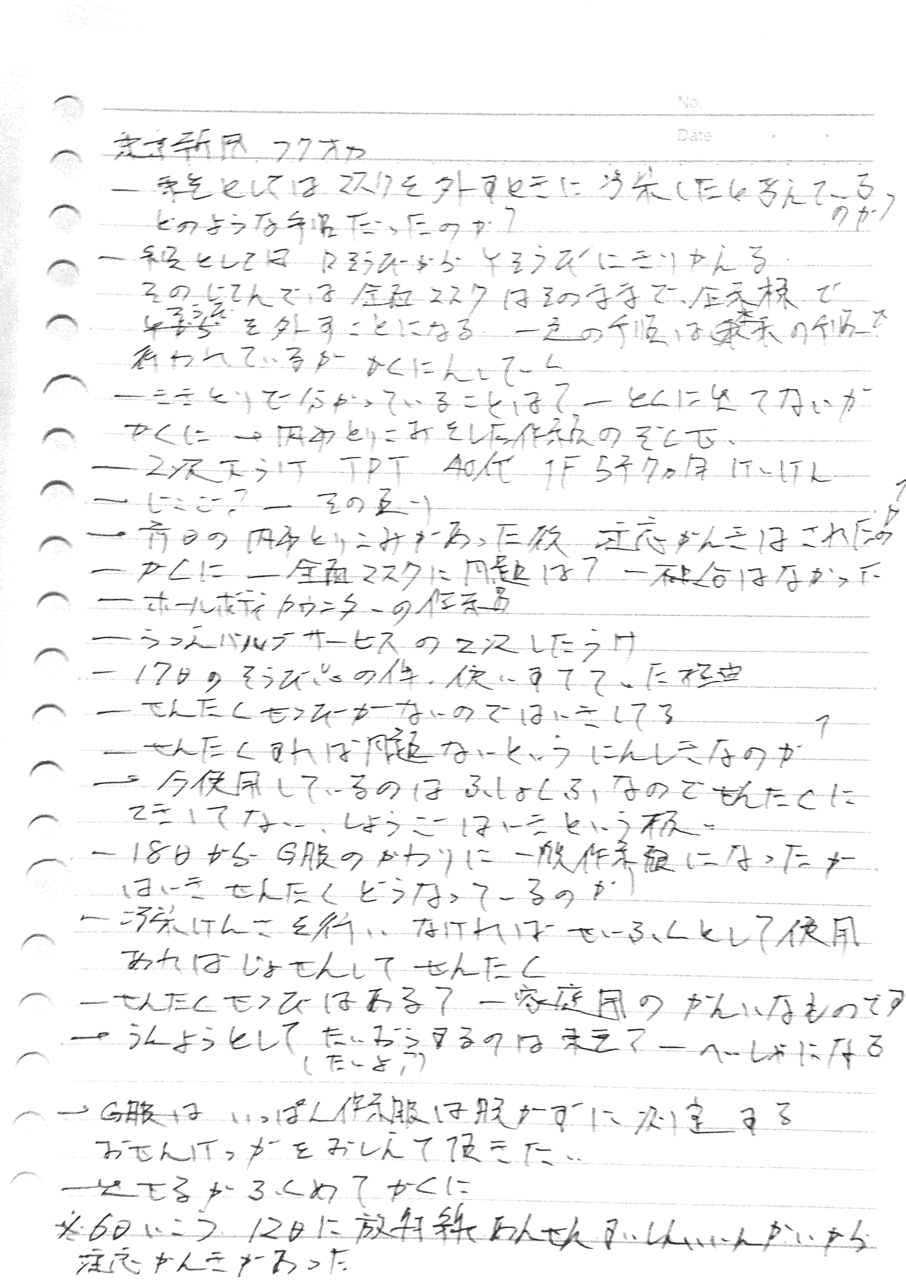 No.
Date
新聞 フクオカ
― としては マスクを外すときに汚染したと考えている
のか?
どのような手順だったのか?
― としては Rそうびから Yそうびにきりかえる
そのじてんでは 全面マスクはそのままで、企業棟で
を外すことになる 一連の手順は の手順で
行われているか かくにんしている
― ききとりで分かっていることは? ― とくに出てないが
かくに → 内部とりこみをした作業員の ぞくせ、
― 2次下うけ TPT 40代 1F 5年7ヵ月 けいけん
→ どこどこ? ― その通り
→ 前日の内部とりこみがあった後 注意かんきはされたの
か?
― かくに ― 全面マスクに問題は? ― 不具合はなかった
― ホールボディカウンターの作業員
― バルブサービスの2次したうけ
― 17日のそうびの件、使いすてていた
― せんたくせつびがないのではいきしてる
― せんたくすれば問題ないというにんしきなのか?
→ 今使用しているのはふしょくふなのでせんたくに
てきしてない、しようごはいきという
― 18日からG服のかわりに一般作業服になったが
はいき せんたく どうなっているのか
― 汚染けんさを行い なければ せいふくとして使用
あればじょせんして せんたく
― せんたくせつびはある? ― 家庭用の かんいなものです
→ うんようとして たいおうするのは東電? ― へいしゃになる
(たいよ?)
→ G服は いっぱん作業服は脱がずに測定する
おせんけっかをおしえて頂きたい
― 出せるか ふくめてかくに
※6日につづ 12日に放射線あんぜんすいしんいいんかいから
注意かんきがあった